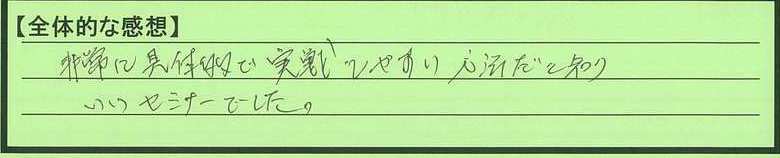 【全体的な感想】
非常に具体的で実戦しやすい方法だと知り
いいセミナーでした。